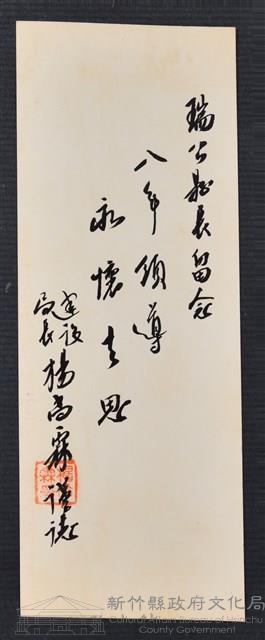 瑞公縣長留念
八年領導
永懷去思
建設
局長 楊尚霖 謹識
新竹縣政府文化局
Cultural Affairs Bureau of Hsinchu
County Government